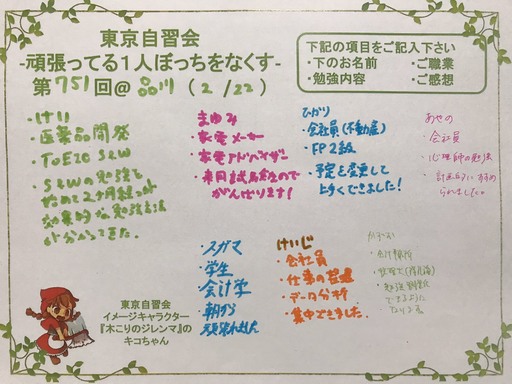 東京自習会
-頑張ってる1人ぼっちをなくす-
第751回@ 品川 (2/22)
下記の項目をご記入下さい
・下のお名前 ・ご職業
・勉強内容 ・ご感想
・けい
・医薬品開発
・TOEIC S&W
・S&Wの勉強を
始めて2ヶ月経つが
効果的な勉強法
が分かってきた。
まゆみ
・家電メーカー
・家電アドバイザー
・来月試験なので
がんばります!
ひかり
・会社員(不動産)
・FP2級
・予定を変更して
上手くできました!
あやの
・会社員
・心理師の勉強
・計画的にすすめ
られました。
・スガマ
・学生
・会計学
・朝から
頑張れました
けいじ
・会社員
・仕事の
・データ分析
・集中できました。
・会計事務所
・勉強習慣化
できるように
なりたい
東京自習会
イメージキャラクター
『木こりのジレンマ』の
キコちゃん